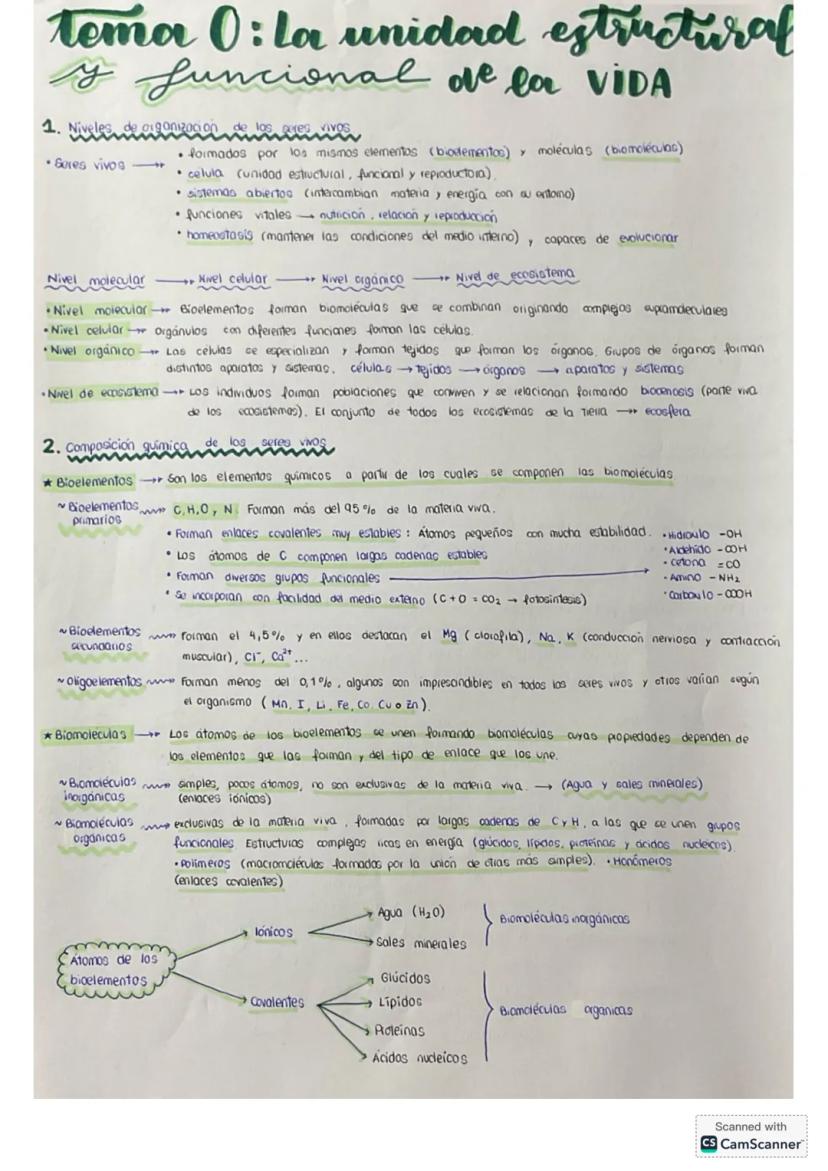 tema 0: La unidad estructural
y funcional de la VIDA
1. Niveles de organización de los seres vivos
• Seres vivos → • formados por los mismos elementos (bioelementos) y moléculas (biomoléculas)
• célula (unidad estructural, funcional y reproductora).
• sistemas abiertos (intercambian materia y energía con su entorno)
• funciones vitales → nutrición, relación y reproducción
• homeostasis (mantener las condiciones del medio interno) y capaces de evolucionar
Nivel molecular → Nivel celular → Nivel orgánico → Nivel de ecosistema
• Nivel molecular → Bioelementos forman biomoléculas que se combinan originando complejos supramoleculares
• Nivel celular → orgánulos con diferentes funciones forman las células.
• Nivel orgánico → Las células se especializan y forman tejidos que forman los órganos. Grupos de órganos forman
distintos aparatos y sistemas. células → tejidos → órganos → aparatos y sistemas
• Nivel de ecosistema → Los individuos forman poblaciones que conviven y se relacionan formando biocenosis (parte viva
de los ecosistemas). El conjunto de todos los ecosistemas de la Tierra → ecosfera
2. Composición química de los seres vivos
★ Bioelementos → Son los elementos químicos a partir de los cuales se componen las biomoléculas
~ Bioelementos primarios → C, H, O, y N. Forman más del 95% de la materia viva.
• Forman enlaces covalentes muy estables: Átomos pequeños con mucha estabilidad. • Hidroxilo -OH
• Los átomos de C componen largas cadenas estables • Aldehido -COH
• Forman diversos grupos funcionales → • Cetona =CO
• Amino -NH₂
• Se incorporan con facilidad del medio externo (C+O = CO₂ → fotosíntesis) • Carboxilo -COOH
~ Bioelementos secundarios → Forman el 4,5% y en ellos destacan el Mg (clorofila), Na, K (conducción nerviosa y contracción
muscular), Cl⁻, Ca²⁺...
~ Oligoelementos → Forman menos del 0,1%, algunos son imprescindibles en todos los seres vivos y otros varían según
el organismo (Mn, I, Li, Fe, Co, Cu o Zn).
★ Biomoléculas → Los átomos de los bioelementos se unen formando biomoléculas cuyas propiedades dependen de
los elementos que las forman y del tipo de enlace que los une.
~ Biomoléculas inorgánicas → simples, pocos átomos, no son exclusivas de la materia viva. → (Agua y sales minerales)
(enlaces iónicos)
~ Biomoléculas orgánicas → exclusivas de la materia viva, formadas por largas cadenas de C y H, a las que se unen grupos
funcionales Estructuras complejas ricas en energía (glúcidos, lípidos, proteínas y ácidos nucleicos).
• Polímeros (macromoléculas formadas por la unión de otras más simples). • Monómeros
(enlaces covalentes)
Átomos de los
bioelementos
Iónicos
Agua (H₂O)
Sales minerales
Biomoléculas inorgánicas
Covalentes
Glúcidos
Lípidos
Proteínas
Ácidos nucleicos
Biomoléculas orgánicas
Scanned with
CS CamScanner